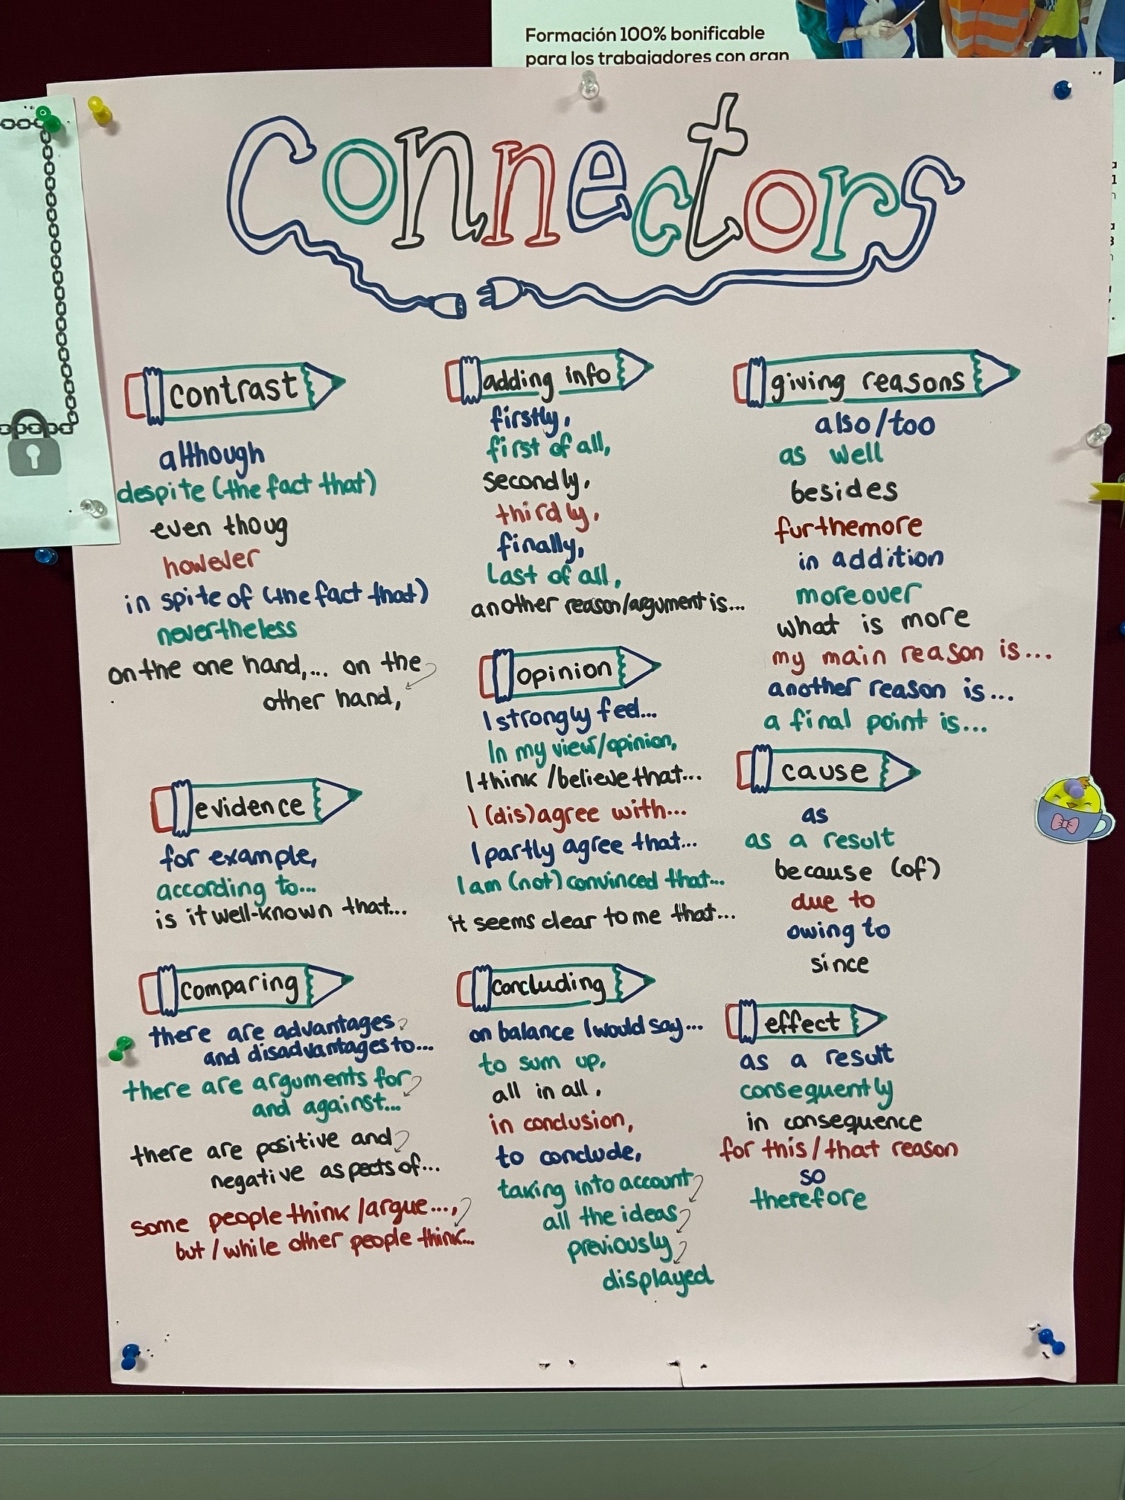 Formación 100% bonificable
para los trabajadores con gran
Connectors
contrast
although
despite (the fact that)
even thoug
however
in spite of (the fact that)
nevertheless
on the one hand,... on the
other hand,
evidence
for example,
according to...
is it well-known that...
comparing
there are advantages
and disadvantages to...
there are arguments for
and against...
there are positive and
negative aspects of...
some people think /argue...,
but / while other people think...
adding info
firstly,
first of all,
secondly,
thirdly,
finally,
Last of all,
another reason/argument is...
opinion
I strongly feel...
In my view/opinion,
I think /believe that...
I (dis)agree with...
I partly agree that...
I am (not) convinced that...
it seems clear to me that...
concluding
on balance I would say...
to sum up,
all in all,
in conclusion,
to conclude,
taking into account
all the ideas
previously
displayed
giving reasons
also/too
as well
besides
furthemore
in addition
moreover
what is more
my main reason is...
another reason is...
a final point is...
cause
as
as a result
because (of)
due to
owing to
since
effect
as a result
consequently
in consequence
for this/that reason
so
therefore